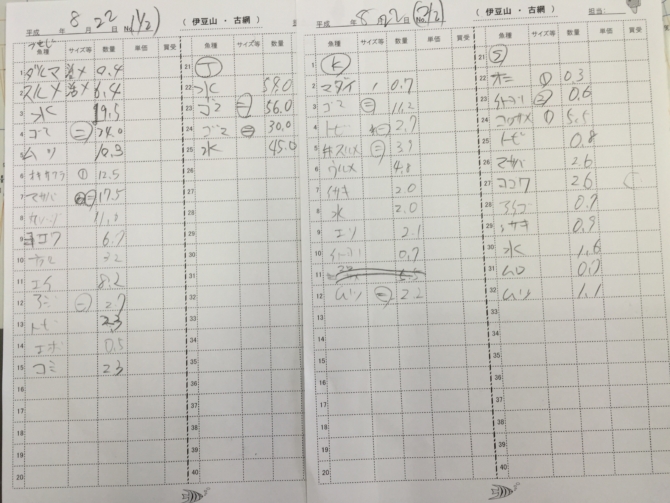 平成 年 8 月 22 日 No.(1/2) ( 伊豆山 ・ 古網 )
魚種 サイズ等 数量 単価 買受 魚種 サイズ等 数量
1 ダルマ 活〆 0.4
2 スルメ 活〆 6.4
3 水 19.5
4 ゴマ ㊁ 24.0
5 ムツ 10.3
6 オキサワラ ① 12.5
7 マサバ ㊁ 17.5
8 11.8
9 ヨコワ 6.7
10 3.2
11 エイ 8.2
12 ㊁ 2.7
13 トビ 2.3
14 エボ 0.5
15 コミ 2.3
16
17
18
19
20
21
22 水 59.0
23 ゴマ ㊁ 56.0
24 ゴマ ㊂ 30.0
25 水 45.0
26
27
28
29
30
31
32
33
34
35
36
37
38
39
40
平成 年 8 月 22 日 No.(2/2) ( 伊豆山 ・ 古網 ) 担当:
魚種 サイズ等 数量 単価 買受 魚種 サイズ等 数量 単価 買受
1 K
2 マダイ 0.7
3 ゴマ ㊁ 11.2
4 トビ 2.7
5 スルメ ㊁ 3.9
6 ウルメ 4.8
7 イサキ 2.0
8 水 2.0
9 エソ 2.1
10 0.7
11
12 ムツ ㊁ 2.2
13
14
15
16
17
18
19
20
21 Σ
22 ① 0.3
23 ㊁ 0.6
24 ① 5.5
25 トビ 0.8
26 マサバ 2.6
27 ヨコワ 2.6
28 0.7
29 イサキ 0.9
30 水 1.6
31 ムロ 0.7
32 ムツ 1.1
33
34
35
36
37
38
39
40